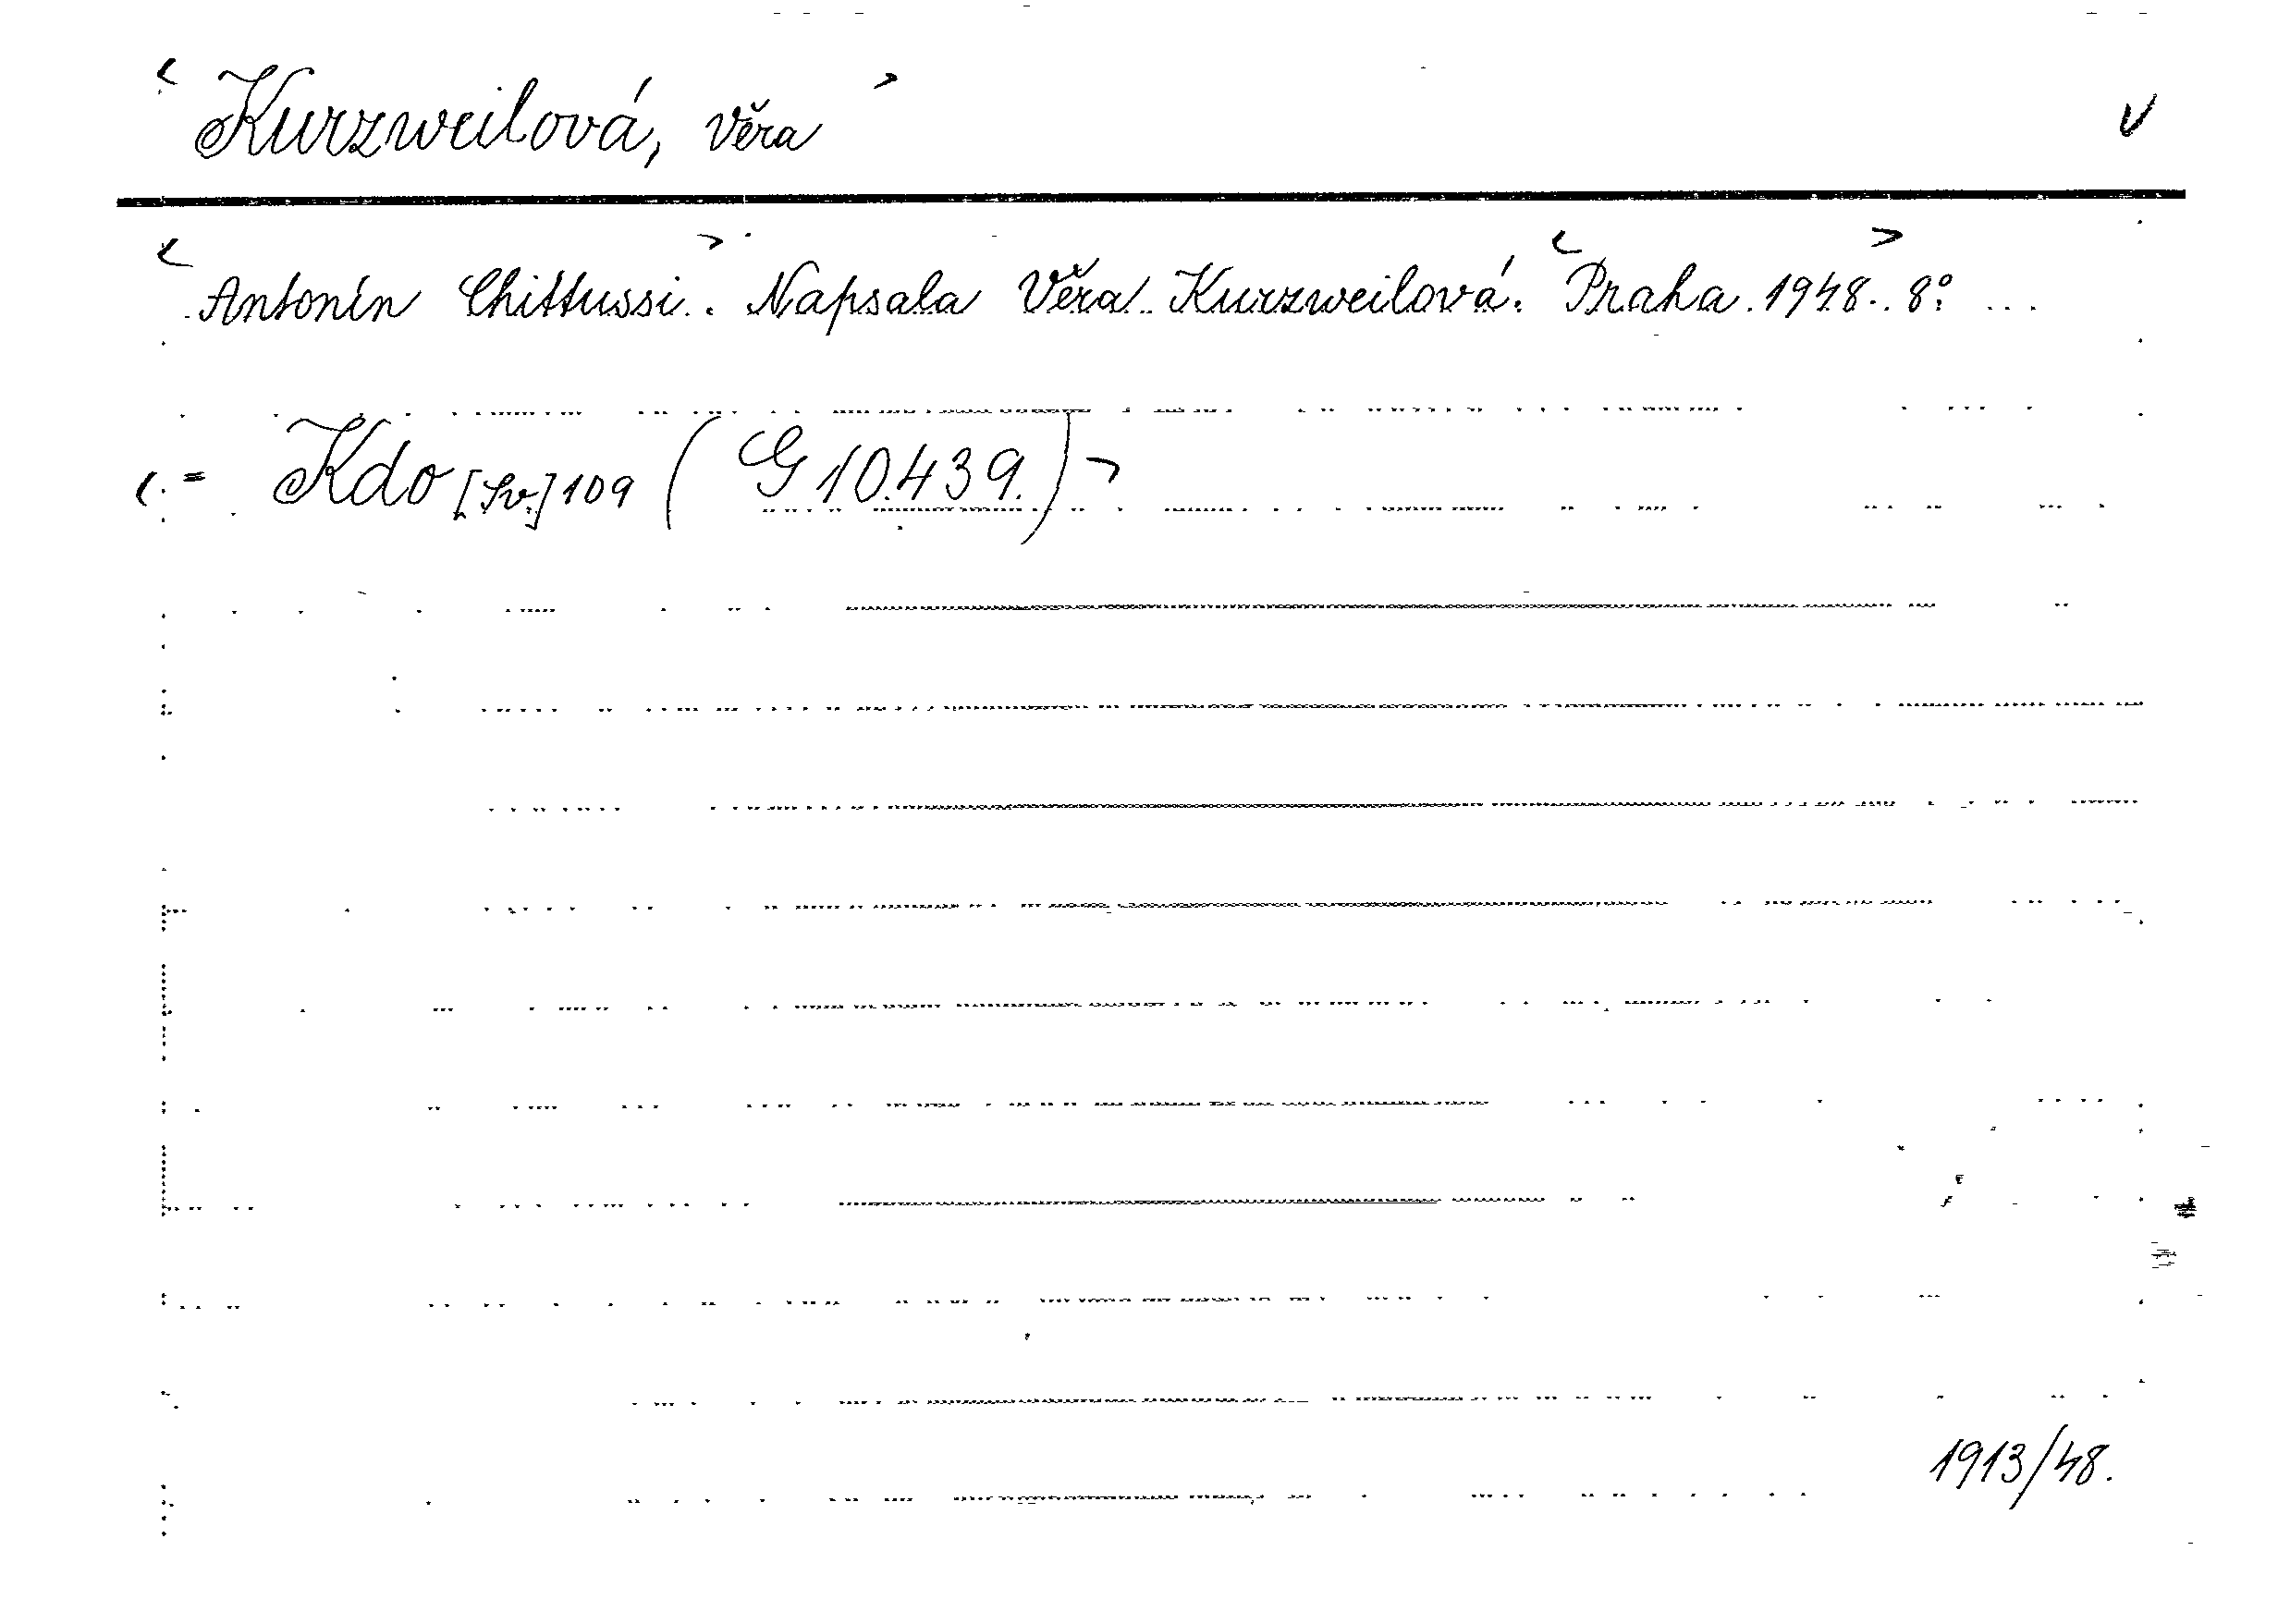 < Kurzweilová, Věra > v
< Antonín Chittussi. > Napsala Věra Kurzweilová. < Praha > 1948. 8°.
< = Kdo [Sv.] 109 ( G 10.439. ) >
1913/48.